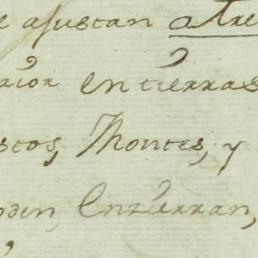 e ajustan atre
aior en tierras
stos, Montes, y
oden, Entierran,